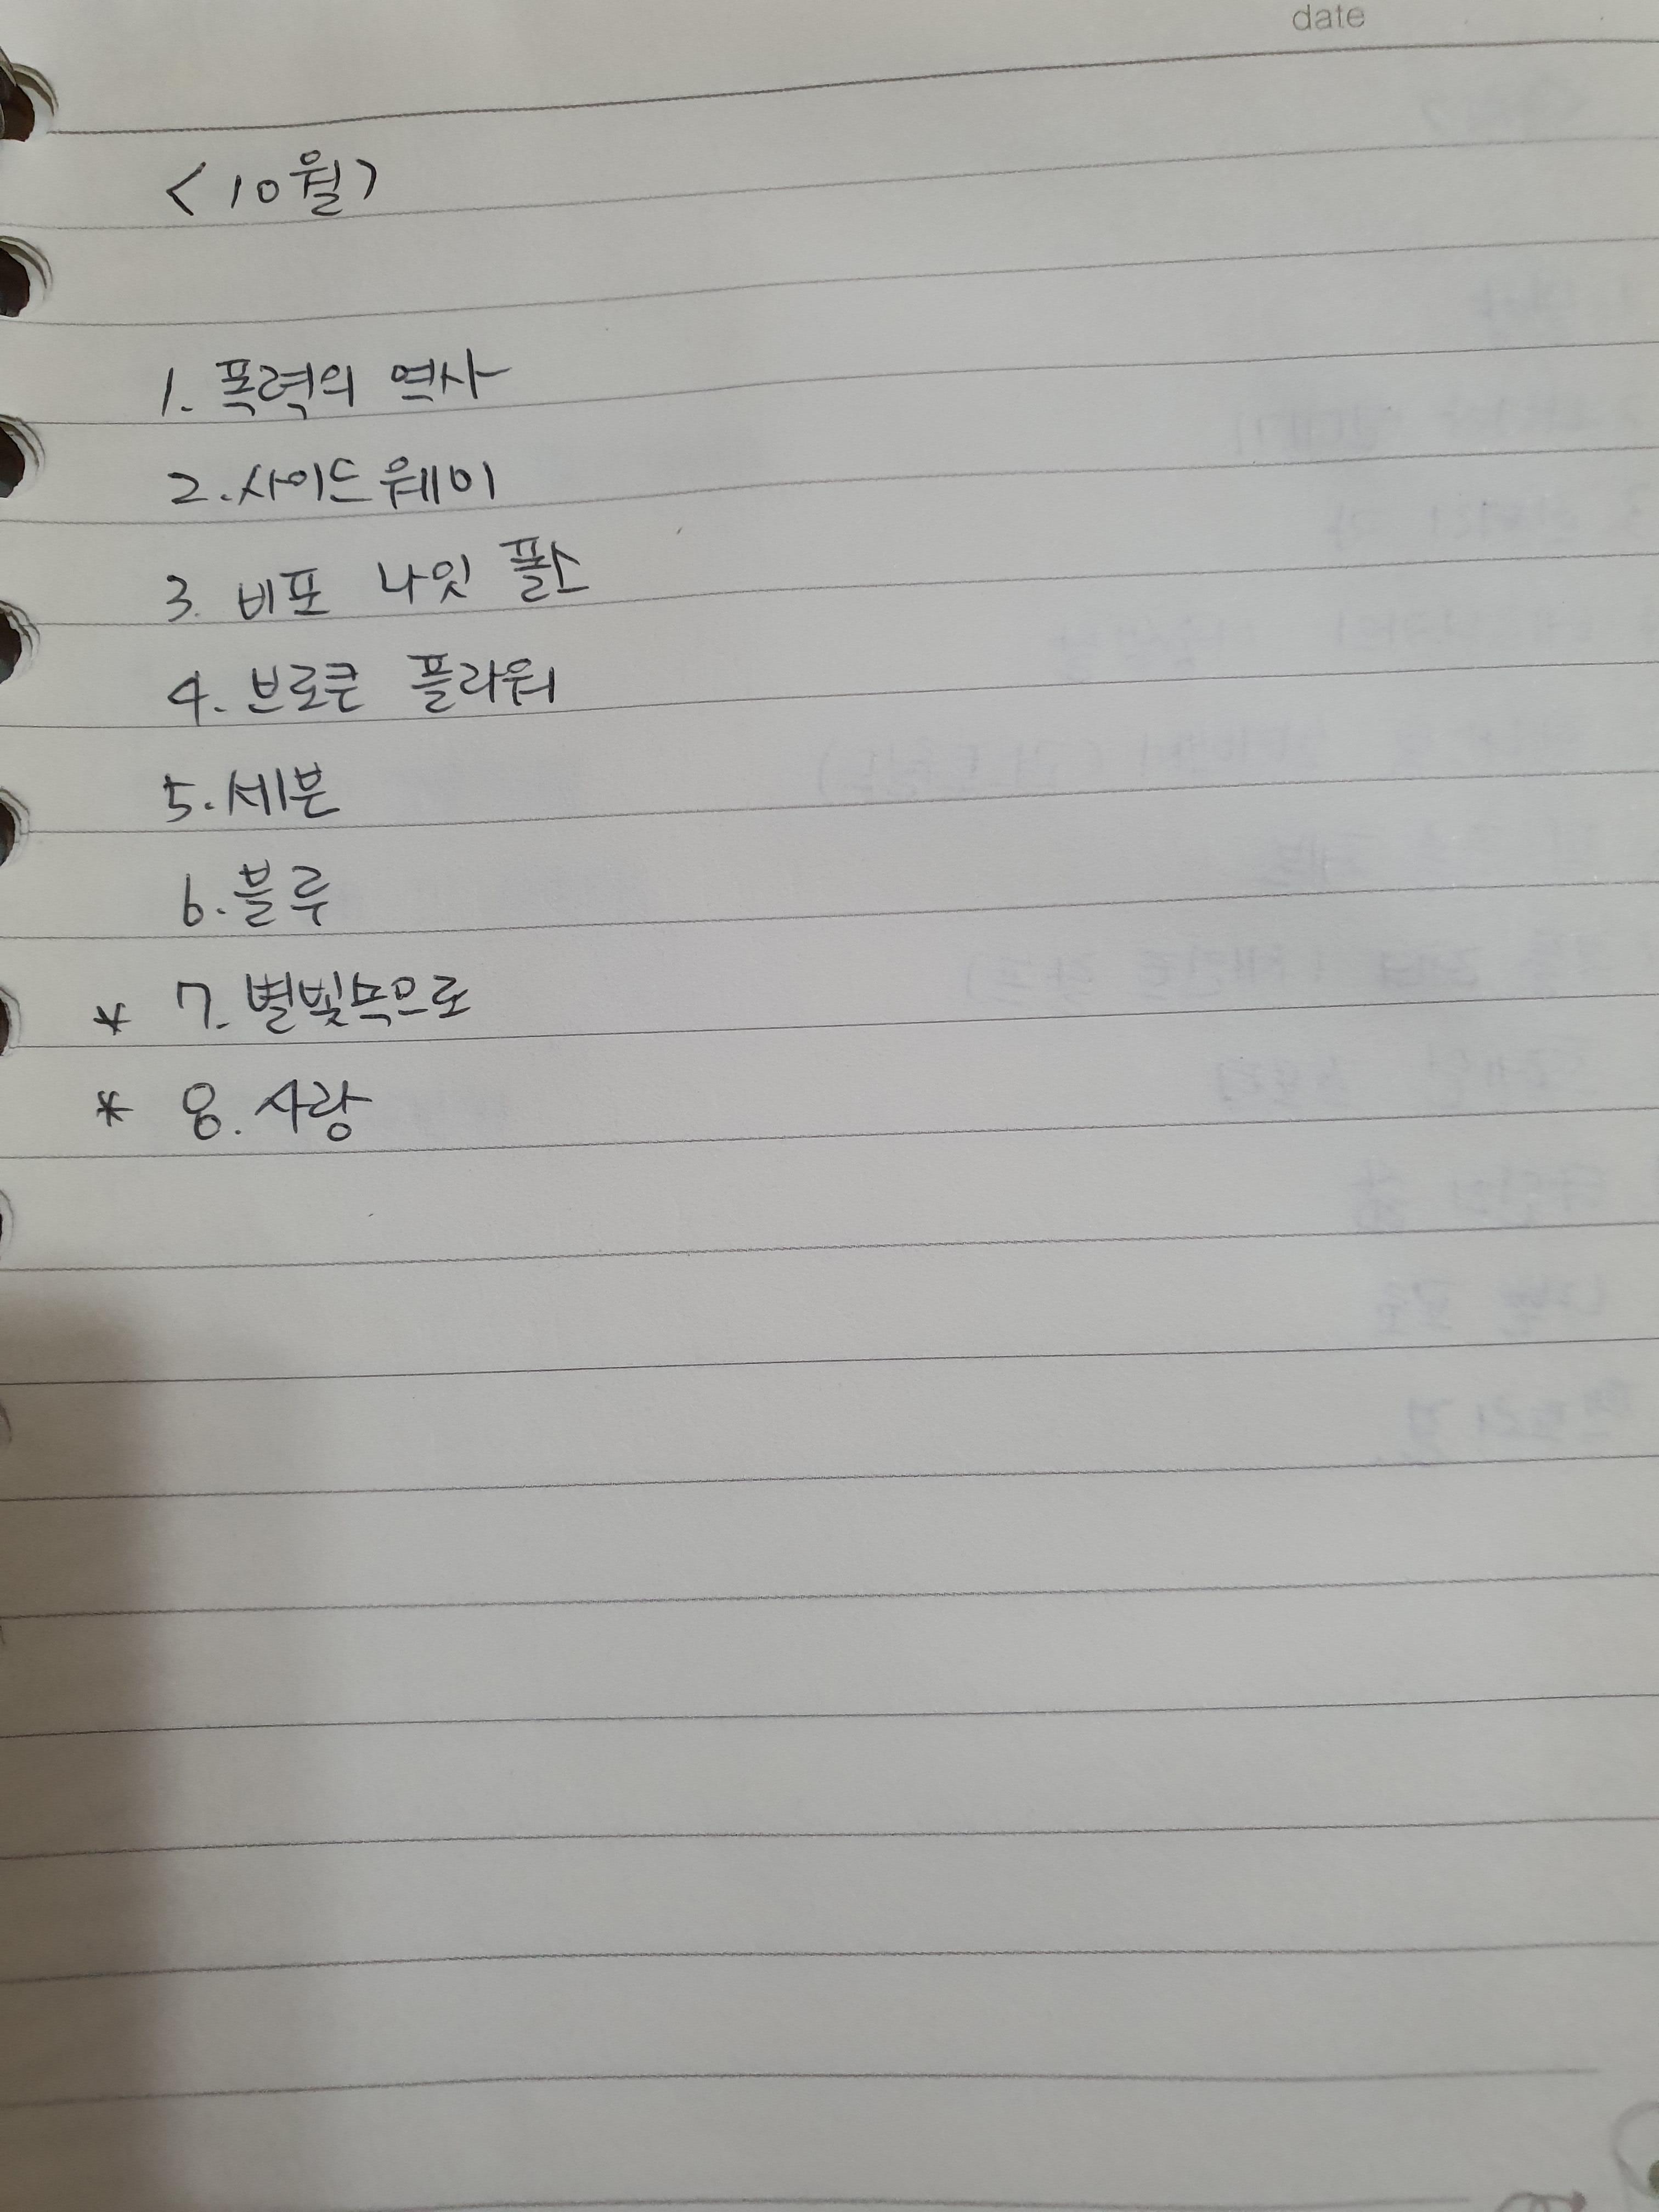 date
<10월>
1. 폭력의 역사
2. 사이드웨이
3. 비포 나잇 폴스
4. 브로큰 플라워
5. 세븐
6. 블루
* 7. 별빛속으로
* 8. 사랑